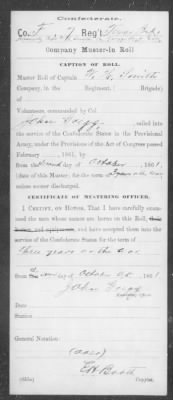 Confederate.
Co. F Reg't Texas Inf.
Company Muster-in Roll
CAPTION OF ROLL.
Muster Roll of Captain W. H. Smith
Company, in the Regiment, ( Brigade)
of
Volunteers, commanded by Col.
John Gregg, called into
the service of the Confederate States in the Provisional
Army, under the Provisions of the Act of Congress passed
February , 1861, by
from the day of October, 1861
(date of this Muster,) for the term of
unless sooner discharged.
CERTIFICATE OF MUSTERING OFFICER.
I CERTIFY, ON HONOR, That I have carefully examined
the men whose names are borne on this Roll, their
horses and equipments, and have accepted them into the
service of the Confederate States for the term of
three years or the war
from the day of October, 1861
John Gregg
Date
Station
General Notation:
E H Booth
Copyist.